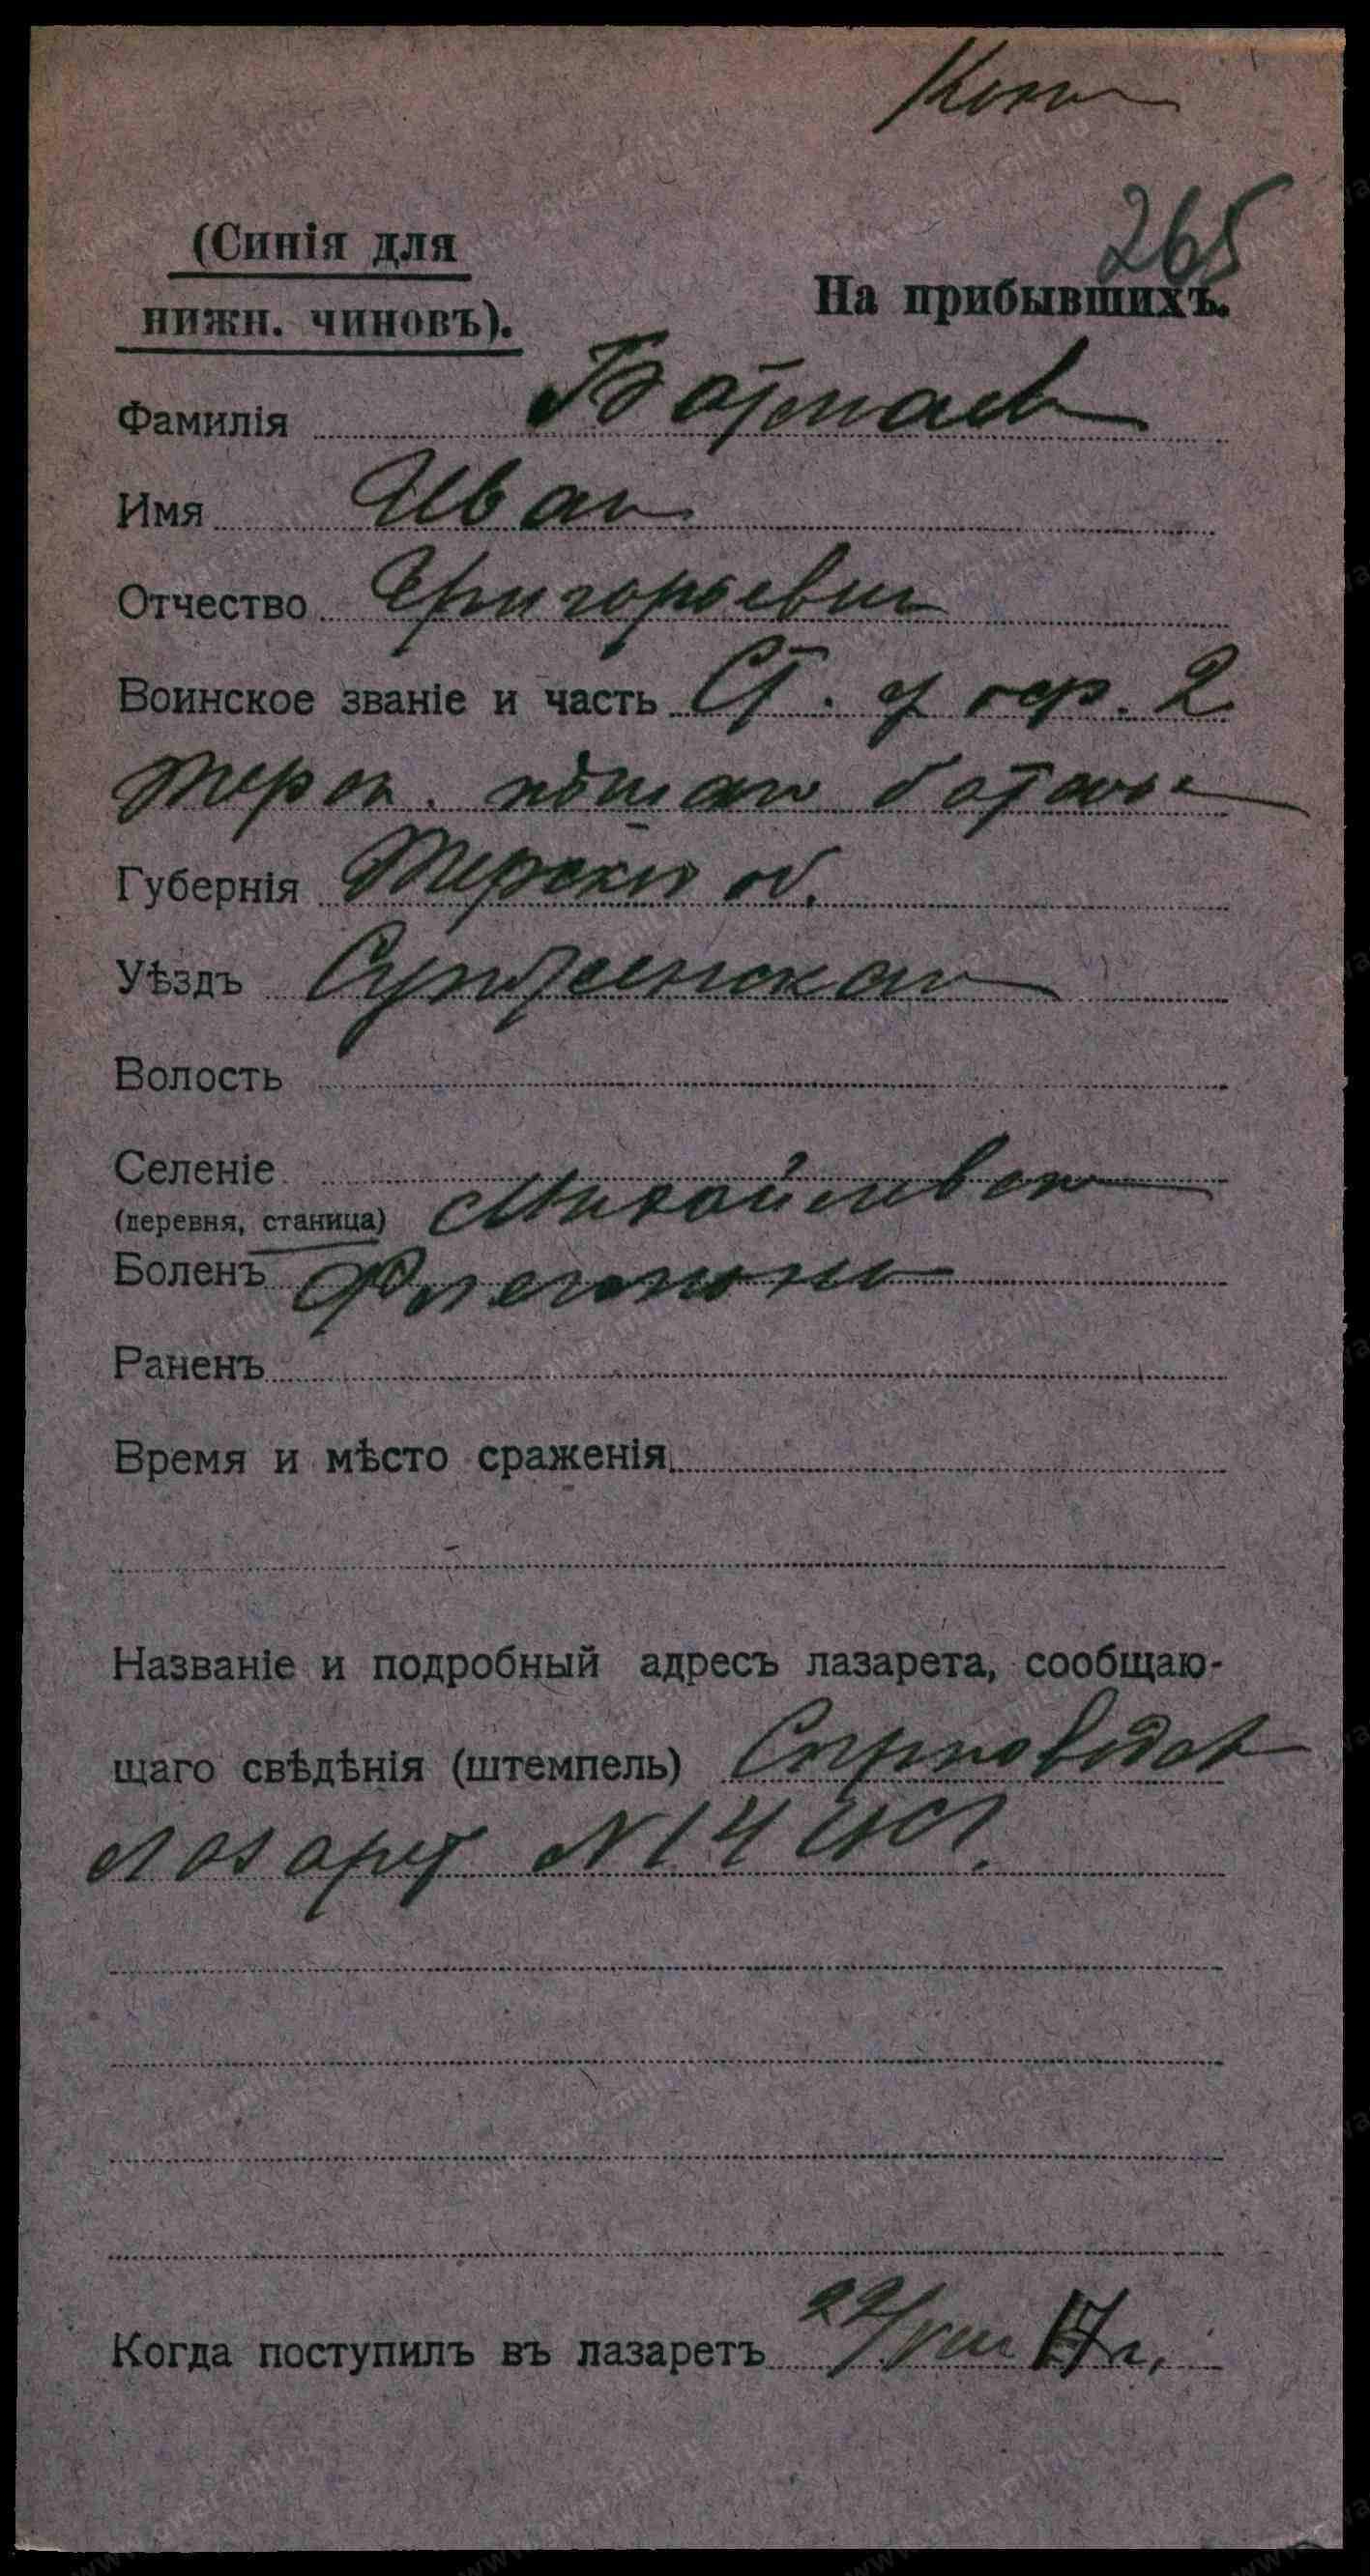 265
(Синія для
На прибывшихъ.
нижн. чиновъ).
Фамилія Ботмаев
Имя Иван
Отчество Григорьевич
Воинское званіе и часть Ст. 2
терск. батал
Губернія Терск об.
Уѣздъ Сунженскаго
Волость
Селеніе
(деревня, станица) Михайловск
Боленъ Флегмона
Раненъ
Время и мѣсто сраженія
Названіе и подробный адресъ лазарета, сообщаю-
щаго свѣдѣнія (штемпель)
лазарет N 14
Когда поступилъ въ лазаретъ 22/VIII 17 г.